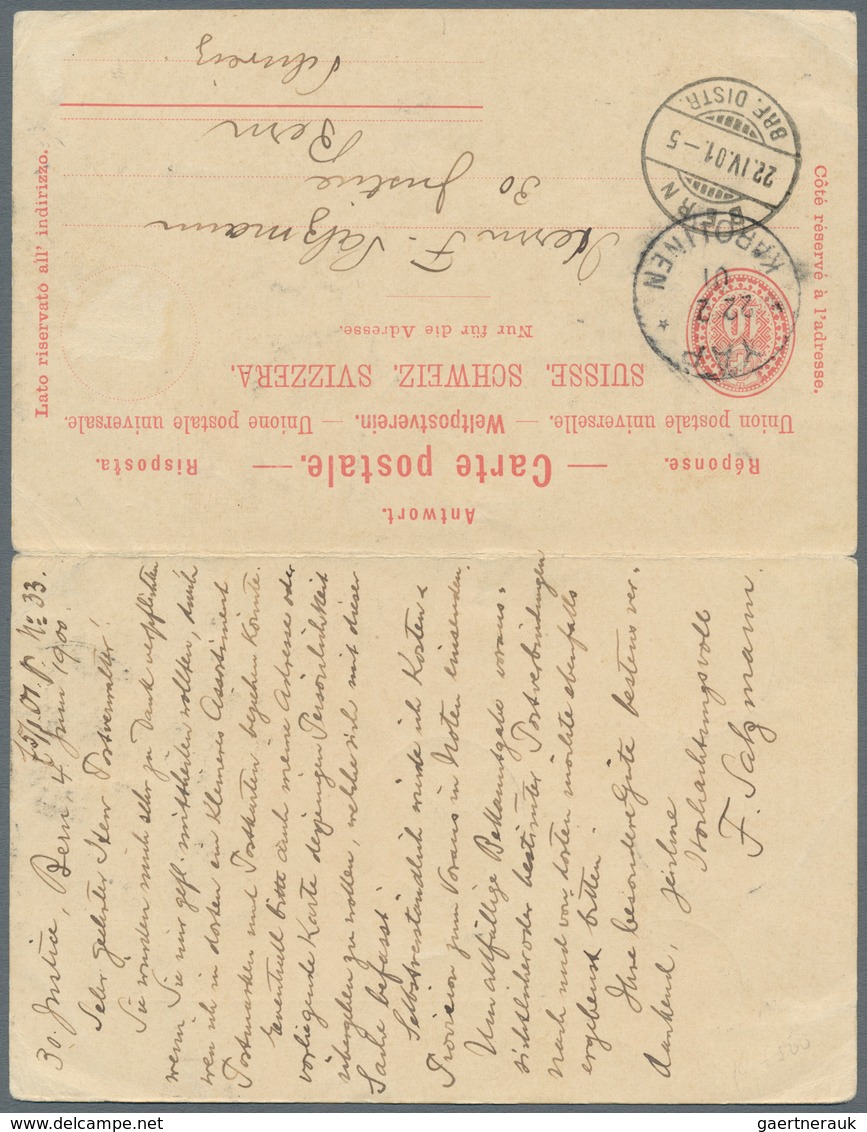 Antwort.
Réponse. — Carte postale. — Risposta.
Union postale universelle. — Weltpostverein. — Unione postale universale.
SUISSE. SCHWEIZ. SVIZZERA.
Nur für die Adresse.
Côté réservé à l'adresse.
Lato riservato all' indirizzo.
YAP
22 3
01
KAROLINEN
BERN
22.IV.01.-5
BRF. DISTR.
Herrn F. Salzmann
30 Justice
Bern
Schweiz
P. No 33.
30. Justice, Bern 4 Juni 1900.
Sehr geehrter Herr Postverwalter!
Sie würden mich sehr zu Dank verpflichten
wenn Sie mir gefl. mittheilen wollten, durch
wen ich in dorten ein kleineres Assortiment
Postmarken und Postkarten beziehen könnte.
Eventuell bitte auch meine Adresse oder
vorliegende Karte derjenigen Persönlichkeit
übergeben zu wollen, welche sich mit dieser
Sache befasst.
Selbstverständlich würde ich Kosten &
Provision zum Voraus in Noten einsenden.
Um allfällige Bekanntgabe voraus-
sichtlicher oder bestimmter Postverbindungen
nach und von dorten möchte ebenfalls
ergebenst bitten.
Ihre besondere Güte bestens ver-
dankend, zeichne
Hochachtungsvoll
F. Salzmann.
gaertnerauk